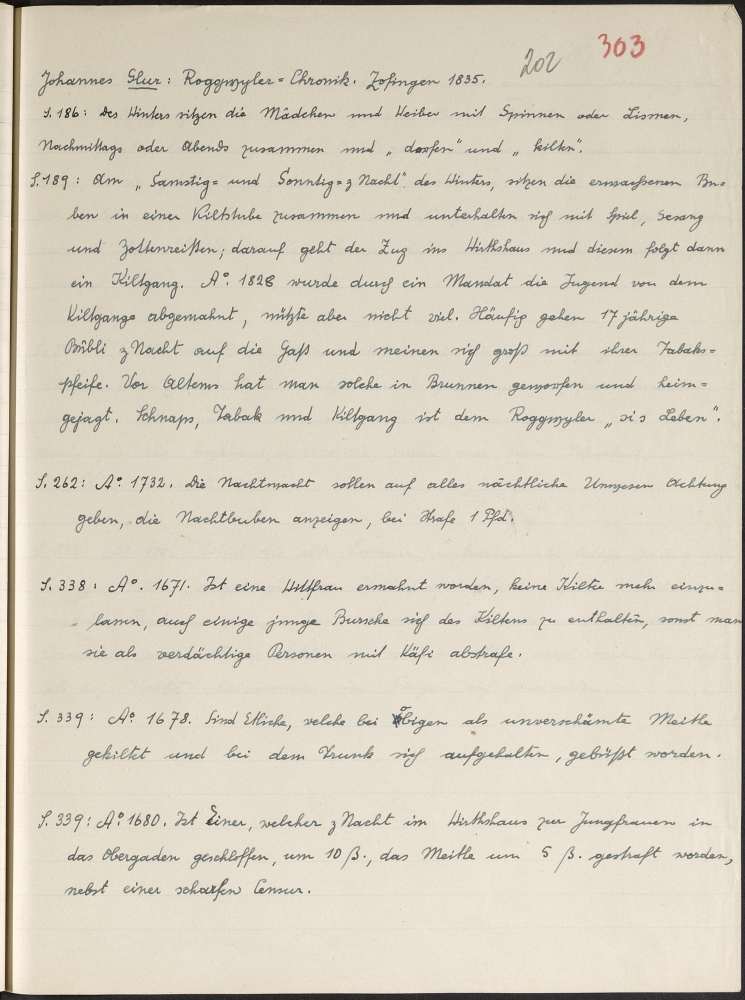 202 303
Johannes Glur: Roggwyler=Chronik. Zofingen 1835.
S. 186: Des Winters sitzen die Mädchen und Weiber mit Spinnen oder Lismen,
Nachmittags oder Abends zusammen und „dorfen“ und „kilten“.
S. 189: Am „Samstig= und Sonntig=z Nacht“ des Winters, sitzen die erwachsenen Bu=
ben in einer Kiltstube zusammen und unterhalten sich mit Spiel, Gesang
und Zottenreißen; darauf geht der Zug ins Wirthshaus und diesem folgt dann
ein Kiltgang. A°. 1828 wurde durch ein Mandat die Jugend von dem
Kiltgange abgemahnt, nützte aber nicht viel. Häufig gehen 17 jährige
Bübli z Nacht auf die Gaß und meinen sich groß mit ihrer Tabaks=
pfeife. Vor Altems hat man solche in Brunnen geworfen und heim=
gejagt. Schnaps, Tabak und Kiltgang ist dem Roggwyler „sis Leben“.
S. 262: A°. 1732. Die Nachtwacht sollen auf alles nächtliche Unwesen Achtung
geben, die Nachtbuben anzeigen, bei Strafe 1 Pfd.
S. 338: A°. 1671. Ist eine Wittfrau ermahnt worden, keine Kilter mehr einzu=
lassen, auch einige junge Bursche sich des Kiltens zu enthalten, sonst man
sie als verdächtige Personen mit Käfi abstrafe.
S. 339: A°. 1678. Sind Etliche, welche bei Obigen als unverschämte Meitle
gekiltet und bei dem Trunk sich aufgehalten, gebüßt worden.
S. 339: A°. 1680. Ist Einer, welcher z Nacht im Wirthshaus zur Jungfrauen in
das Obergaden geschloffen, um 10 ß., das Meitle um 5 ß. gestraft worden,
nebst einer scharfen Censur.